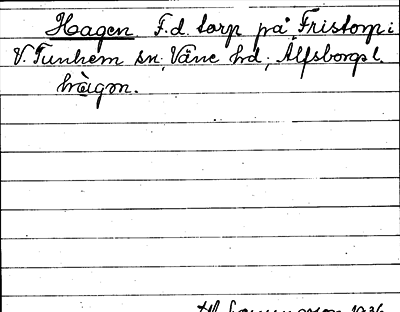 Hagen F.d. torp på Fristorp i
V. Tunhem sn, Väne hd, Älfsborgs l.
hàgɷn.
1936